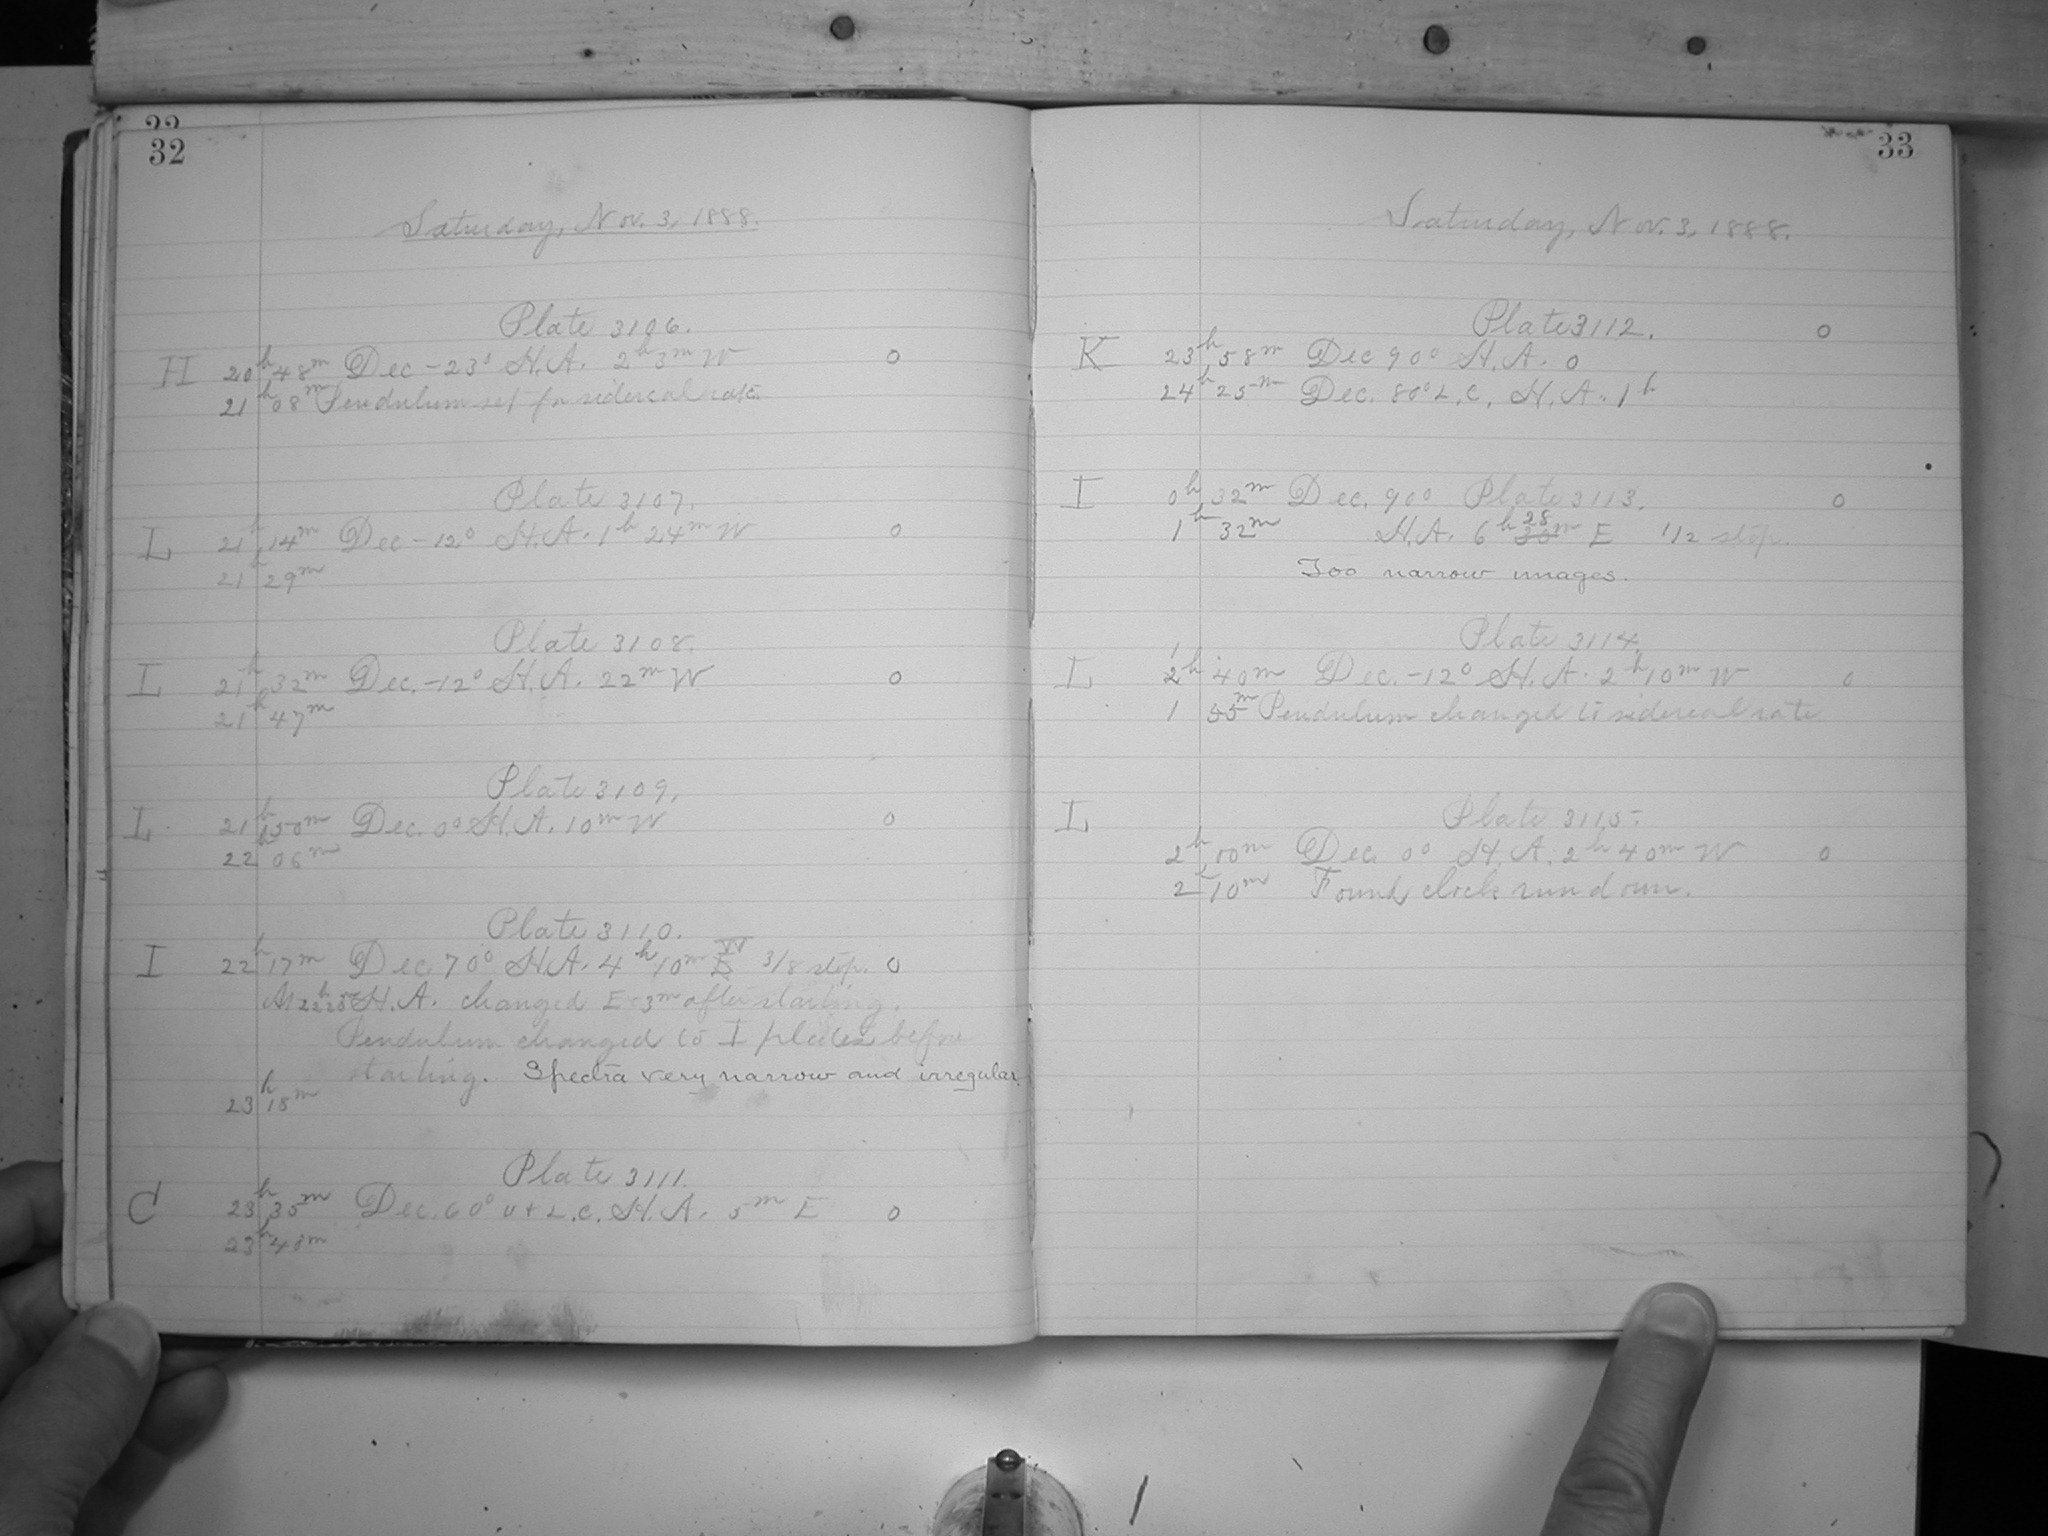 32
Saturday, Nov. 3, 1888.
Plate 3106.
H 20h 48m Dec -23° H.A. 2h 3m W 0
21h 08m Pendulum set for sidereal rate.
Plate 3107.
L 21h 14m Dec -12° H.A. 1h 24m W 0
21h 29m
Plate 3108.
L 21h 32m Dec. -12° H.A. 22m W 0
21h 47m
Plate 3109.
L 21h 50m Dec. 0° H.A. 10m W 0
22h 06m
Plate 3110.
I 22h 17m Dec. 70° H.A. 4h 10m W 3/8 stop. 0
At 22h 20m H.A. changed E 3m after starting.
Pendulum changed to I plates before
starting. Spectra very narrow and irregular.
23h 18m
Plate 3111.
C 23h 35m Dec. 60° U + L.C. H.A. 5m E 0
23h 48m
33
Saturday, Nov. 3, 1888.
Plate 3112. 0
K 23h 58m Dec 90° H.A. 0
24h 25m Dec. 80° L.C. H.A. 1h
I 0h 32m Dec. 90° Plate 3113. 0
1h 32m H.A. 6h 28m E 1/2 stop.
Too narrow images.
Plate 3114.
L 1h 40m Dec. -12° H.A. 2h 10m W 0
1 55m Pendulum changed to sidereal rate
L Plate 3115.
2h 00m Dec. 0° H.A. 2h 40m W 0
2h 10m Found clock run down.